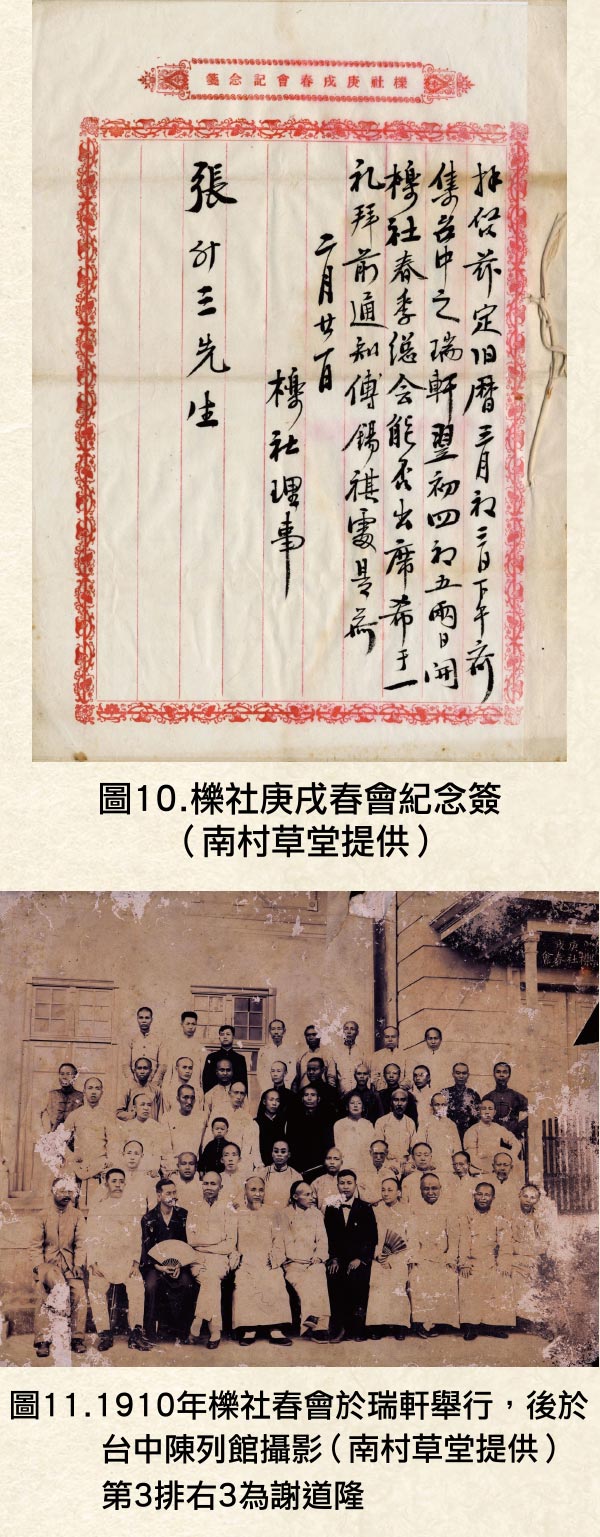 櫟社庚戌春會記念箋
拜啓茲定旧曆三月初三日下午齊
集台中之瑞軒翌初四初五兩日開
櫟社春季総会能否出席希于一
礼拜前通知傅錫祺處是荷
二月廿一日
櫟社理事
張升三先生
圖10.櫟社庚戌春會紀念簽
（南村草堂提供）
庚戌
櫟社春會
圖11.1910年櫟社春會於瑞軒舉行，後於
台中陳列館攝影（南村草堂提供）
第3排右3為謝道隆